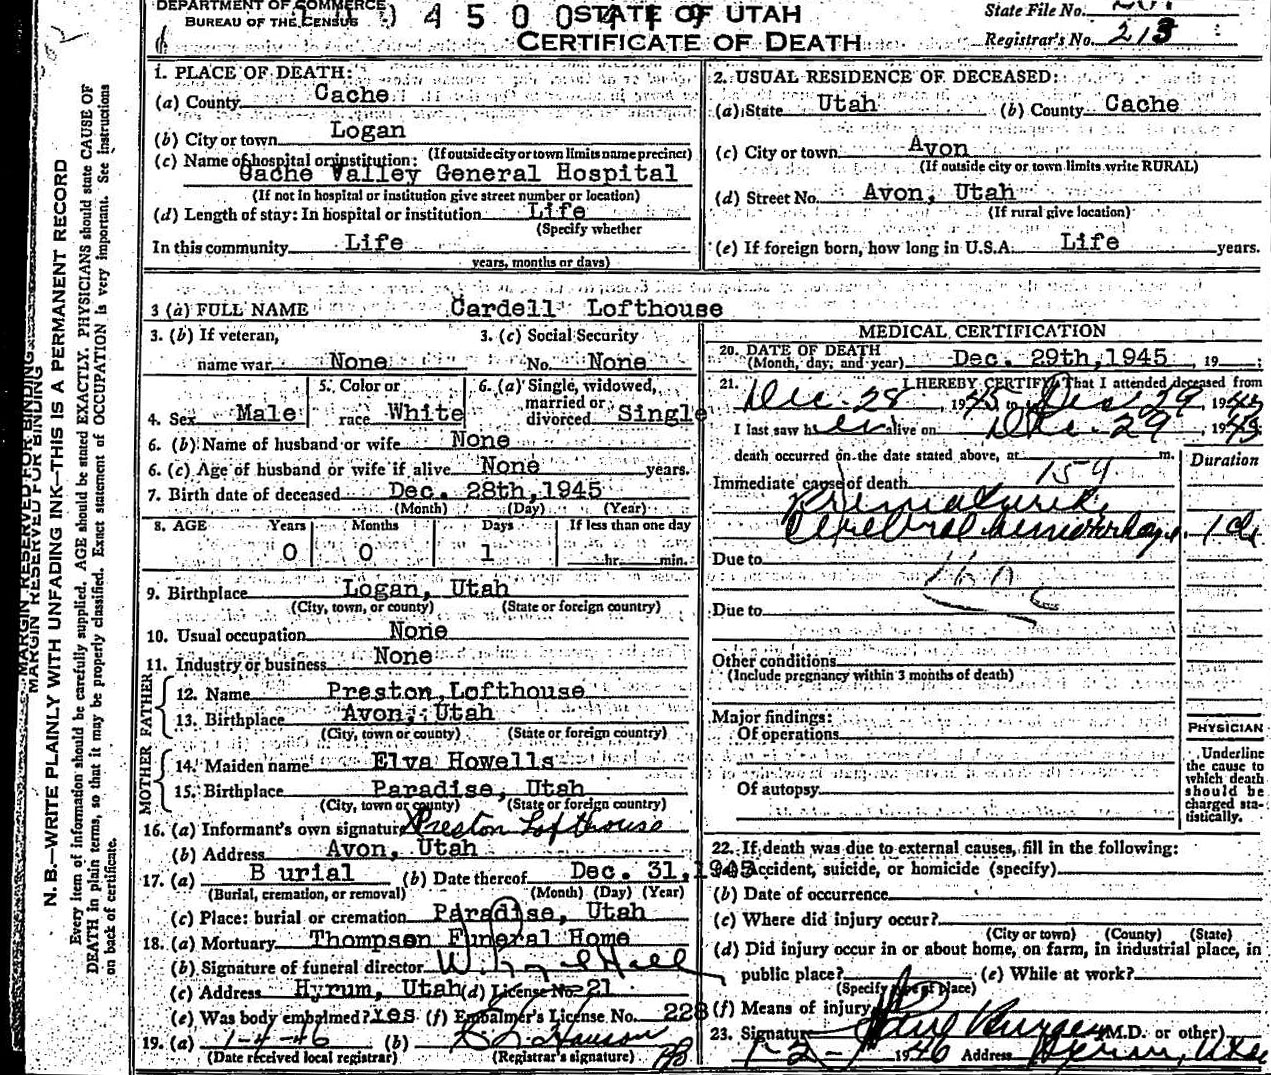 DEPARTMENT OF COMMERCE
BUREAU OF THE CENSUS
4 5 0 0 4 1 9
STATE OF UTAH
CERTIFICATE OF DEATH
State File No.
Registrar's No. 213
MARGIN RESERVED FOR BINDING
MARGIN RESERVED FOR BINDING
N. B.—WRITE PLAINLY WITH UNFADING INK—THIS IS A PERMANENT RECORD
Every item of information should be carefully supplied. AGE should be stated EXACTLY. PHYSICIANS should state CAUSE OF
DEATH in plain terms, so that it may be properly classified. Exact statement of OCCUPATION is very important. See instructions
on back of certificate.
1. PLACE OF DEATH:
(a) County Cache
(b) City or town Logan
(If outside city or town limits name precinct)
(c) Name of hospital or institution:
Cache Valley General Hospital
(If not in hospital or institution give street number or location)
(d) Length of stay: In hospital or institution Life
(Specify whether
In this community Life
years, months or days)
2. USUAL RESIDENCE OF DECEASED:
(a) State Utah (b) County Cache
(c) City or town Avon
(If outside city or town limits write RURAL)
(d) Street No. Avon, Utah
(If rural give location)
(e) If foreign born, how long in U.S.A. Life years.
3 (a) FULL NAME Cardell Lofthouse
3. (b) If veteran, 3. (c) Social Security
name war None No. None
4. Sex Male 5. Color or race White 6. (a) Single, widowed, married or divorced Single
6. (b) Name of husband or wife None
6. (c) Age of husband or wife if alive None years.
7. Birth date of deceased Dec. 28th, 1945
(Month) (Day) (Year)
8. AGE Years Months Days If less than one day
0 0 1 hr. min.
9. Birthplace Logan, Utah
(City, town, or county) (State or foreign country)
10. Usual occupation None
11. Industry or business None
FATHER
12. Name Preston Lofthouse
13. Birthplace Avon, Utah
(City, town or county) (State or foreign country)
MOTHER
14. Maiden name Elva Howells
15. Birthplace Paradise, Utah
(City, town or county) (State or foreign country)
16. (a) Informant's own signature Preston Lofthouse
(b) Address Avon, Utah
17. (a) Burial (b) Date thereof Dec. 31, 1945
(Burial, cremation, or removal) (Month) (Day) (Year)
(c) Place: burial or cremation Paradise, Utah
18. (a) Mortuary Thompson Funeral Home
(b) Signature of funeral director
(c) Address Hyrum, Utah (d) License No. 21
(e) Was body embalmed? Yes (f) Embalmer's License No. 228
19. (a) 1-4-46 (b)
(Date received local registrar) (Registrar's signature)
MEDICAL CERTIFICATION
20. DATE OF DEATH
(Month, day, and year) Dec. 29th, 1945, 19 ;
21. I HEREBY CERTIFY, That I attended deceased from
Dec. 28, 1945 to Dec. 29 1945
I last saw h alive on Dec. 29, 1945
death occurred on the date stated above, at m.
Duration
159
Immediate cause of death
Prematurity
Cerebral hemorrhage
Due to
Due to
Other conditions
(Include pregnancy within 3 months of death)
Major findings:
Of operations
Of autopsy
PHYSICIAN
Underline
the cause to
which death
should be
charged sta-
tistically.
22. If death was due to external causes, fill in the following:
(a) Accident, suicide, or homicide (specify)
(b) Date of occurrence
(c) Where did injury occur?
(City or town) (County) (State)
(d) Did injury occur in or about home, on farm, in industrial place, in
public place? (e) While at work?
(Specify type of place)
(f) Means of injury
23. Signature (M.D. or other)
1-2- 1946 Address Hyrum, Utah